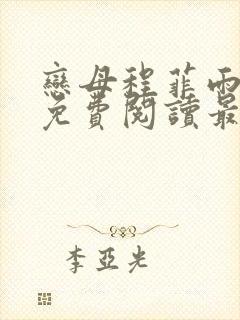 戀母程菲雨
免費閱讀最
李亞光